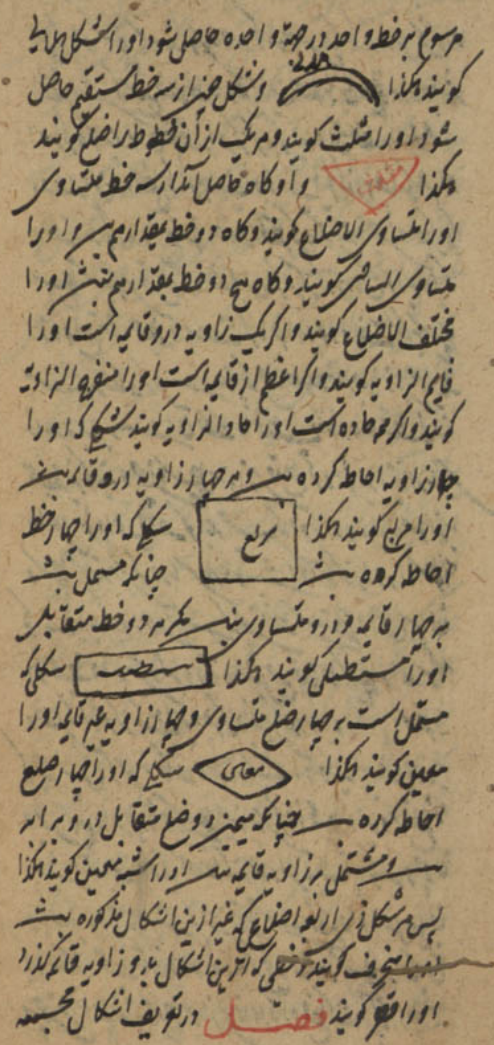 مرسوم بر خط واحد در جهة واحده حاصل شود اورا شکل هلالی
کویند هکذا هلالی وشکل چند از سه خط مستقیم حاصل
شود اورا مثلث کویند و هر یک از آن خطوط را ضلع کویند
هکذا مثلث و او کاه حاصل آید از سه خط متساوی
اورا متساوی الاضلاع کویند و کاه دو خط بمقدار هم و اورا
متساوی الساقین کویند و کاه هیچ دو خط بمقدار هم اورا
مختلف الاضلاع کویند و اکر یک زاویه در و قایمه است اورا
قایم الزاویه کویند و اکر اعظم از قایمه است اورا منفرج الزاویه
کویند و اکر همه حاده است اورا حاد الزاویه کویند شکلی که اورا
چهار زاویه احاطه کرده و هر چهار زاویه در و قایمه
اورا مربع کویند هکذا مربع شکلی که اورا چهار خط
احاطه کرده چنانکه مشتمل
بر چهار قایمه و در و متساوی مکر هر دو خط متقابل
اورا مستطیل کویند هکذا مستطیل شکلی که
مشتمل است بر چهار ضلع متساوی و چهار زاویه غیر قایمه اورا
معین کویند هکذا معین شکلی که اورا چهار ضلع
احاطه کرده چنانکه دو ضلع متقابل در و برابر
و مشتمل بر زاویه قایمه اورا شبه معین کویند هکذا
پس هر شکل ذی اربع اضلاع که غیر از این اشکال مذکوره
اورا منحرف کویند و خطی که از این اشکال بدو زاویه کذرد
اورا قطر کویند فصل در تعریف اشکال مجسمه